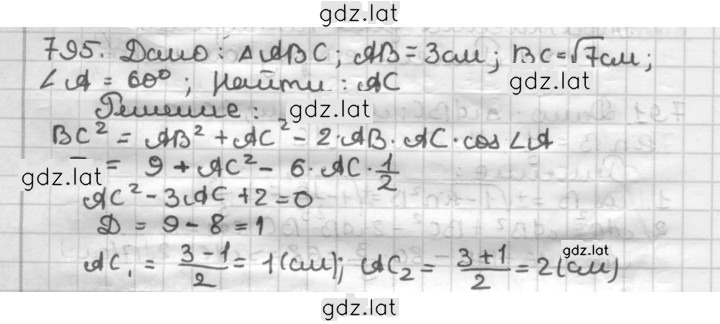 gdz.lat
795. Дано: △ABC; AB = 3см; BC = √7 см;
∠A = 60°; Найти: AC
gdz.lat
Решение:
gdz.lat
BC² = AB² + AC² - 2·AB·AC·cos∠A
= 9 + AC² - 6·AC·1/2
gdz.lat
AC² - 3AC + 2 = 0
D = 9 - 8 = 1
gdz.lat
AC₁ = (3-1)/2 = 1(см); AC₂ = (3+1)/2 = 2(см)
gdz.lat